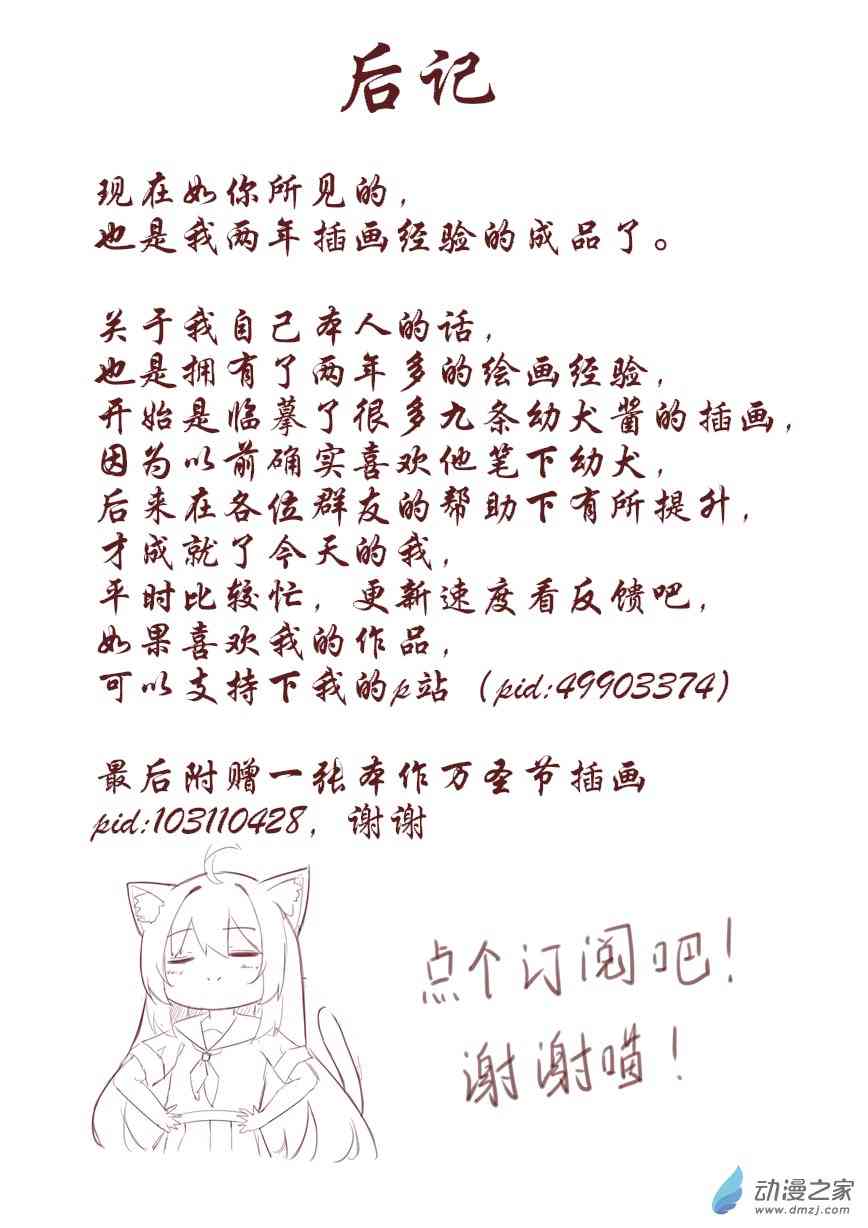 后记
现在如你所见的，
也是我两年插画经验的成品了。
关于我自己本人的话，
也是拥有了两年多的绘画经验，
开始是临摹了很多九条幼犬酱的插画，
因为以前确实喜欢他笔下幼犬，
后来在各位群友的帮助下有所提升，
才成就了今天的我，
平时比较忙，更新速度看反馈吧，
如果喜欢我的作品，
可以支持下我的p站（pid:49903374）
最后附赠一张本作万圣节插画
pid:103110428，谢谢
点个订阅吧！
谢谢喵！
动漫之家
www.dmzj.com